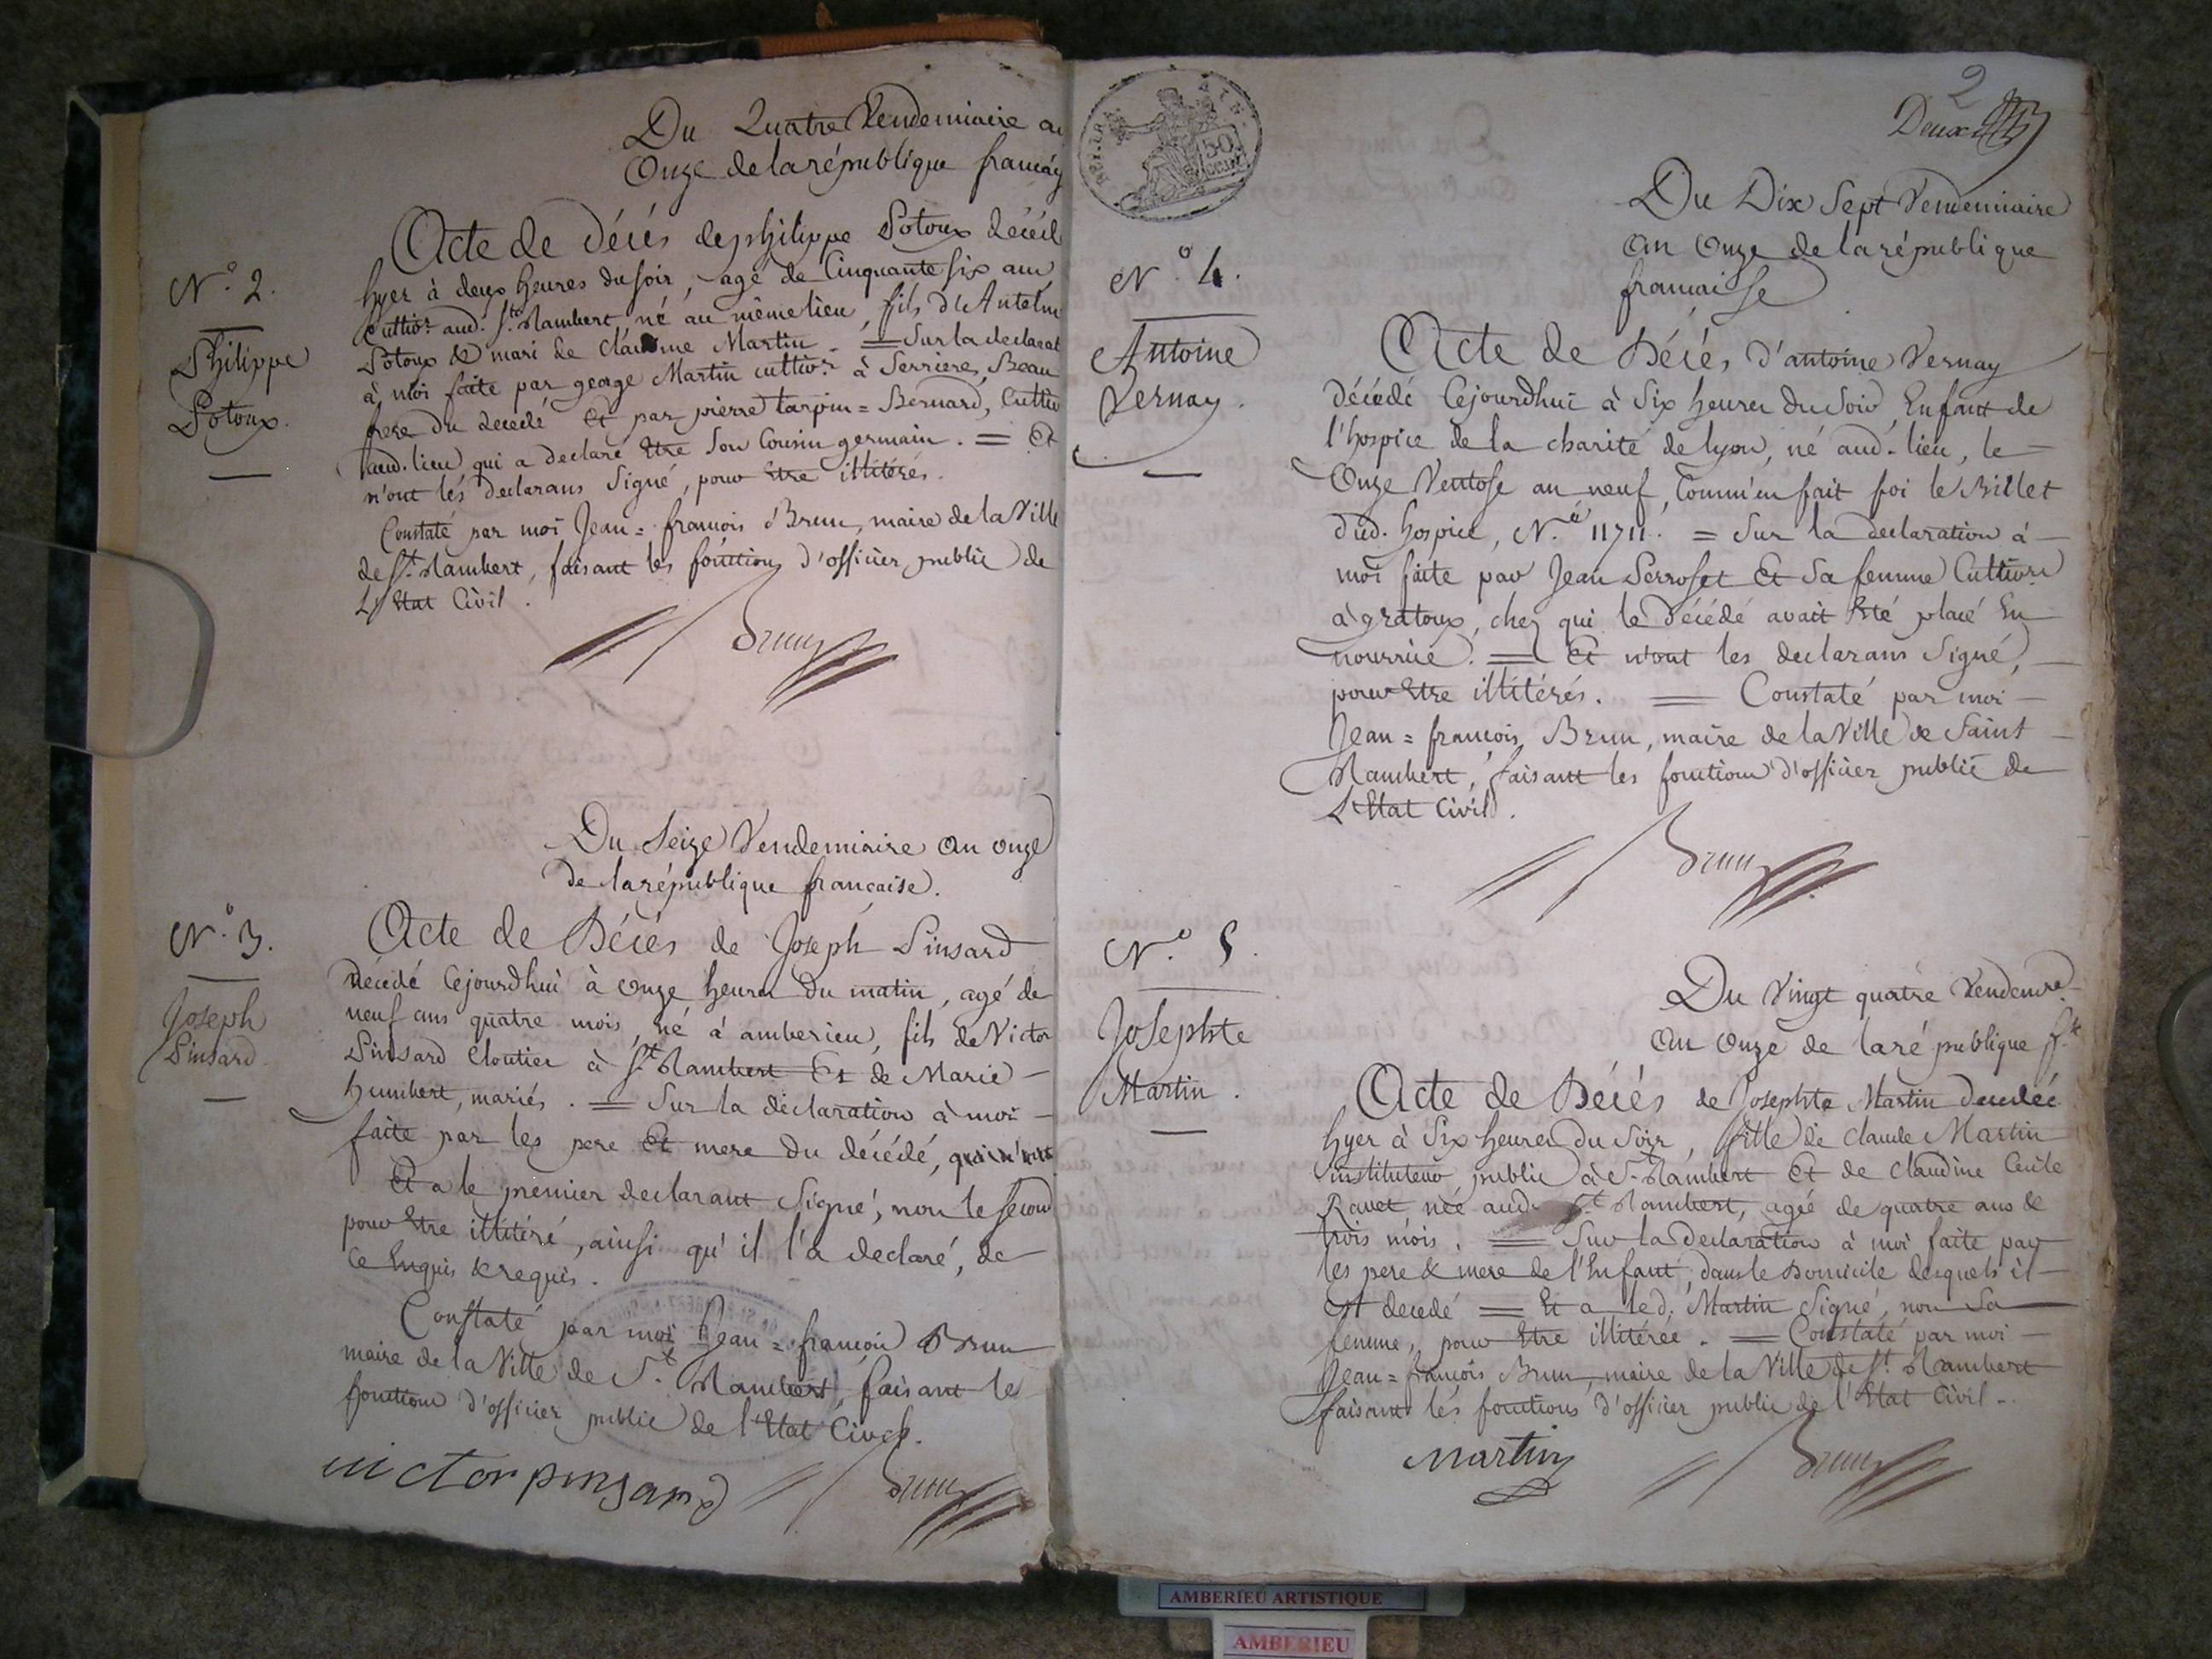 Du Quatre Vendemiaire an
Onze de la république françai
N.° 2.
Philippe
Potoux.
Acte de Décés de philippe Potoux décédé
hyer à deux heures du soir, agé de Cinquante six ans,
Cultiv.r aud. S.t Rambert, né au même lieu, fils d'Antelm
Potoux & mari de claudine Martin. = Sur la declarat
à moi faite par george Martin cultiv.r à Serrieres, Beau
frere du decedé Et par pierre tarpin = Bernard, Cultiv
aud. lieu, qui a declaré Etre son Cousin germain. = Et
n'ont les declarans Signé, pour Etre illitérés.
Constaté par moi Jean = françois Brun, maire de la Ville
de S.t Rambert, faisant les fonctions d'officier public de
L'Etat Civil.
Brun
Du Seize Vendemiaire an onze
de la république française.
N.° 3.
Joseph
Pinsard.
Acte de Décés de Joseph Pinsard
décédé Cejourdhui à onze heures du matin, agé de
neuf ans quatre mois, né à amberieu, fils de Victor
Pinsard Cloutier à S.t Rambert Et de Marie
humbert, mariés. = Sur la déclaration à moi
faite par les pere Et mere du décédé,
Et a le premier declarant Signé, non le second
pour Etre illitéré, ainsi qu'il l'a declaré, de
ce Enquis & requis.
Constaté par moi Jean = françois Brun
maire de la Ville de S.t Rambert, faisant les
fonctions d'officier public de l'Etat Civil.
victor pinsard
Brun
2
Deux
50
N.° 4.
Antoine
Vernay.
Du Dix Sept Vendemiaire
an onze de la république
française
Acte de Décés d'antoine Vernay
décédé Cejourdhui à Six heures du Soir, Enfant de
l'hospice de la charité de lyon, né aud. lieu, le
Onze Ventose an neuf, Comm'en fait foi le Billet
dud. hospice, N.° 11711. = Sur la declaration à
moi faite par Jean Perroset Et Sa femme Cultiv.rs
à gratoux, chez qui le décédé avait Eté placé En
nourrice. = Et n'ont les declarans Signé,
pour Etre illitérés. = Constaté par moi
Jean = françois Brun, maire de la Ville de Saint
Rambert, faisant les fonctions d'officier public de
L'Etat Civil.
Brun
N.° 5.
Josephte
Martin.
Du Vingt quatre Vendem.re
an onze de la république f.se
Acte de Décés de Josephte Martin decedée
hyer à Six heures du Soir, fille de claude Martin
instituteur public à S.t Rambert Et de claudine Cecile
Ravet née aud. S.t Rambert, agée de quatre ans &
trois mois. = Sur la declaration à moi faite par
les pere & mere de l'Enfant, dans le Domicile desquels il
est decedé = Et a led. Martin Signé, non Sa
femme, pour Etre illitérée. = Constaté par moi
Jean = françois Brun, maire de la Ville de S.t Rambert
faisant les fonctions d'officier public de l'Etat Civil.
Martin
Brun
AMBERIEU ARTISTIQUE
AMBERIEU